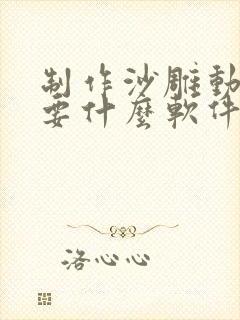 制作沙雕動
要什麼軟件
洛心心